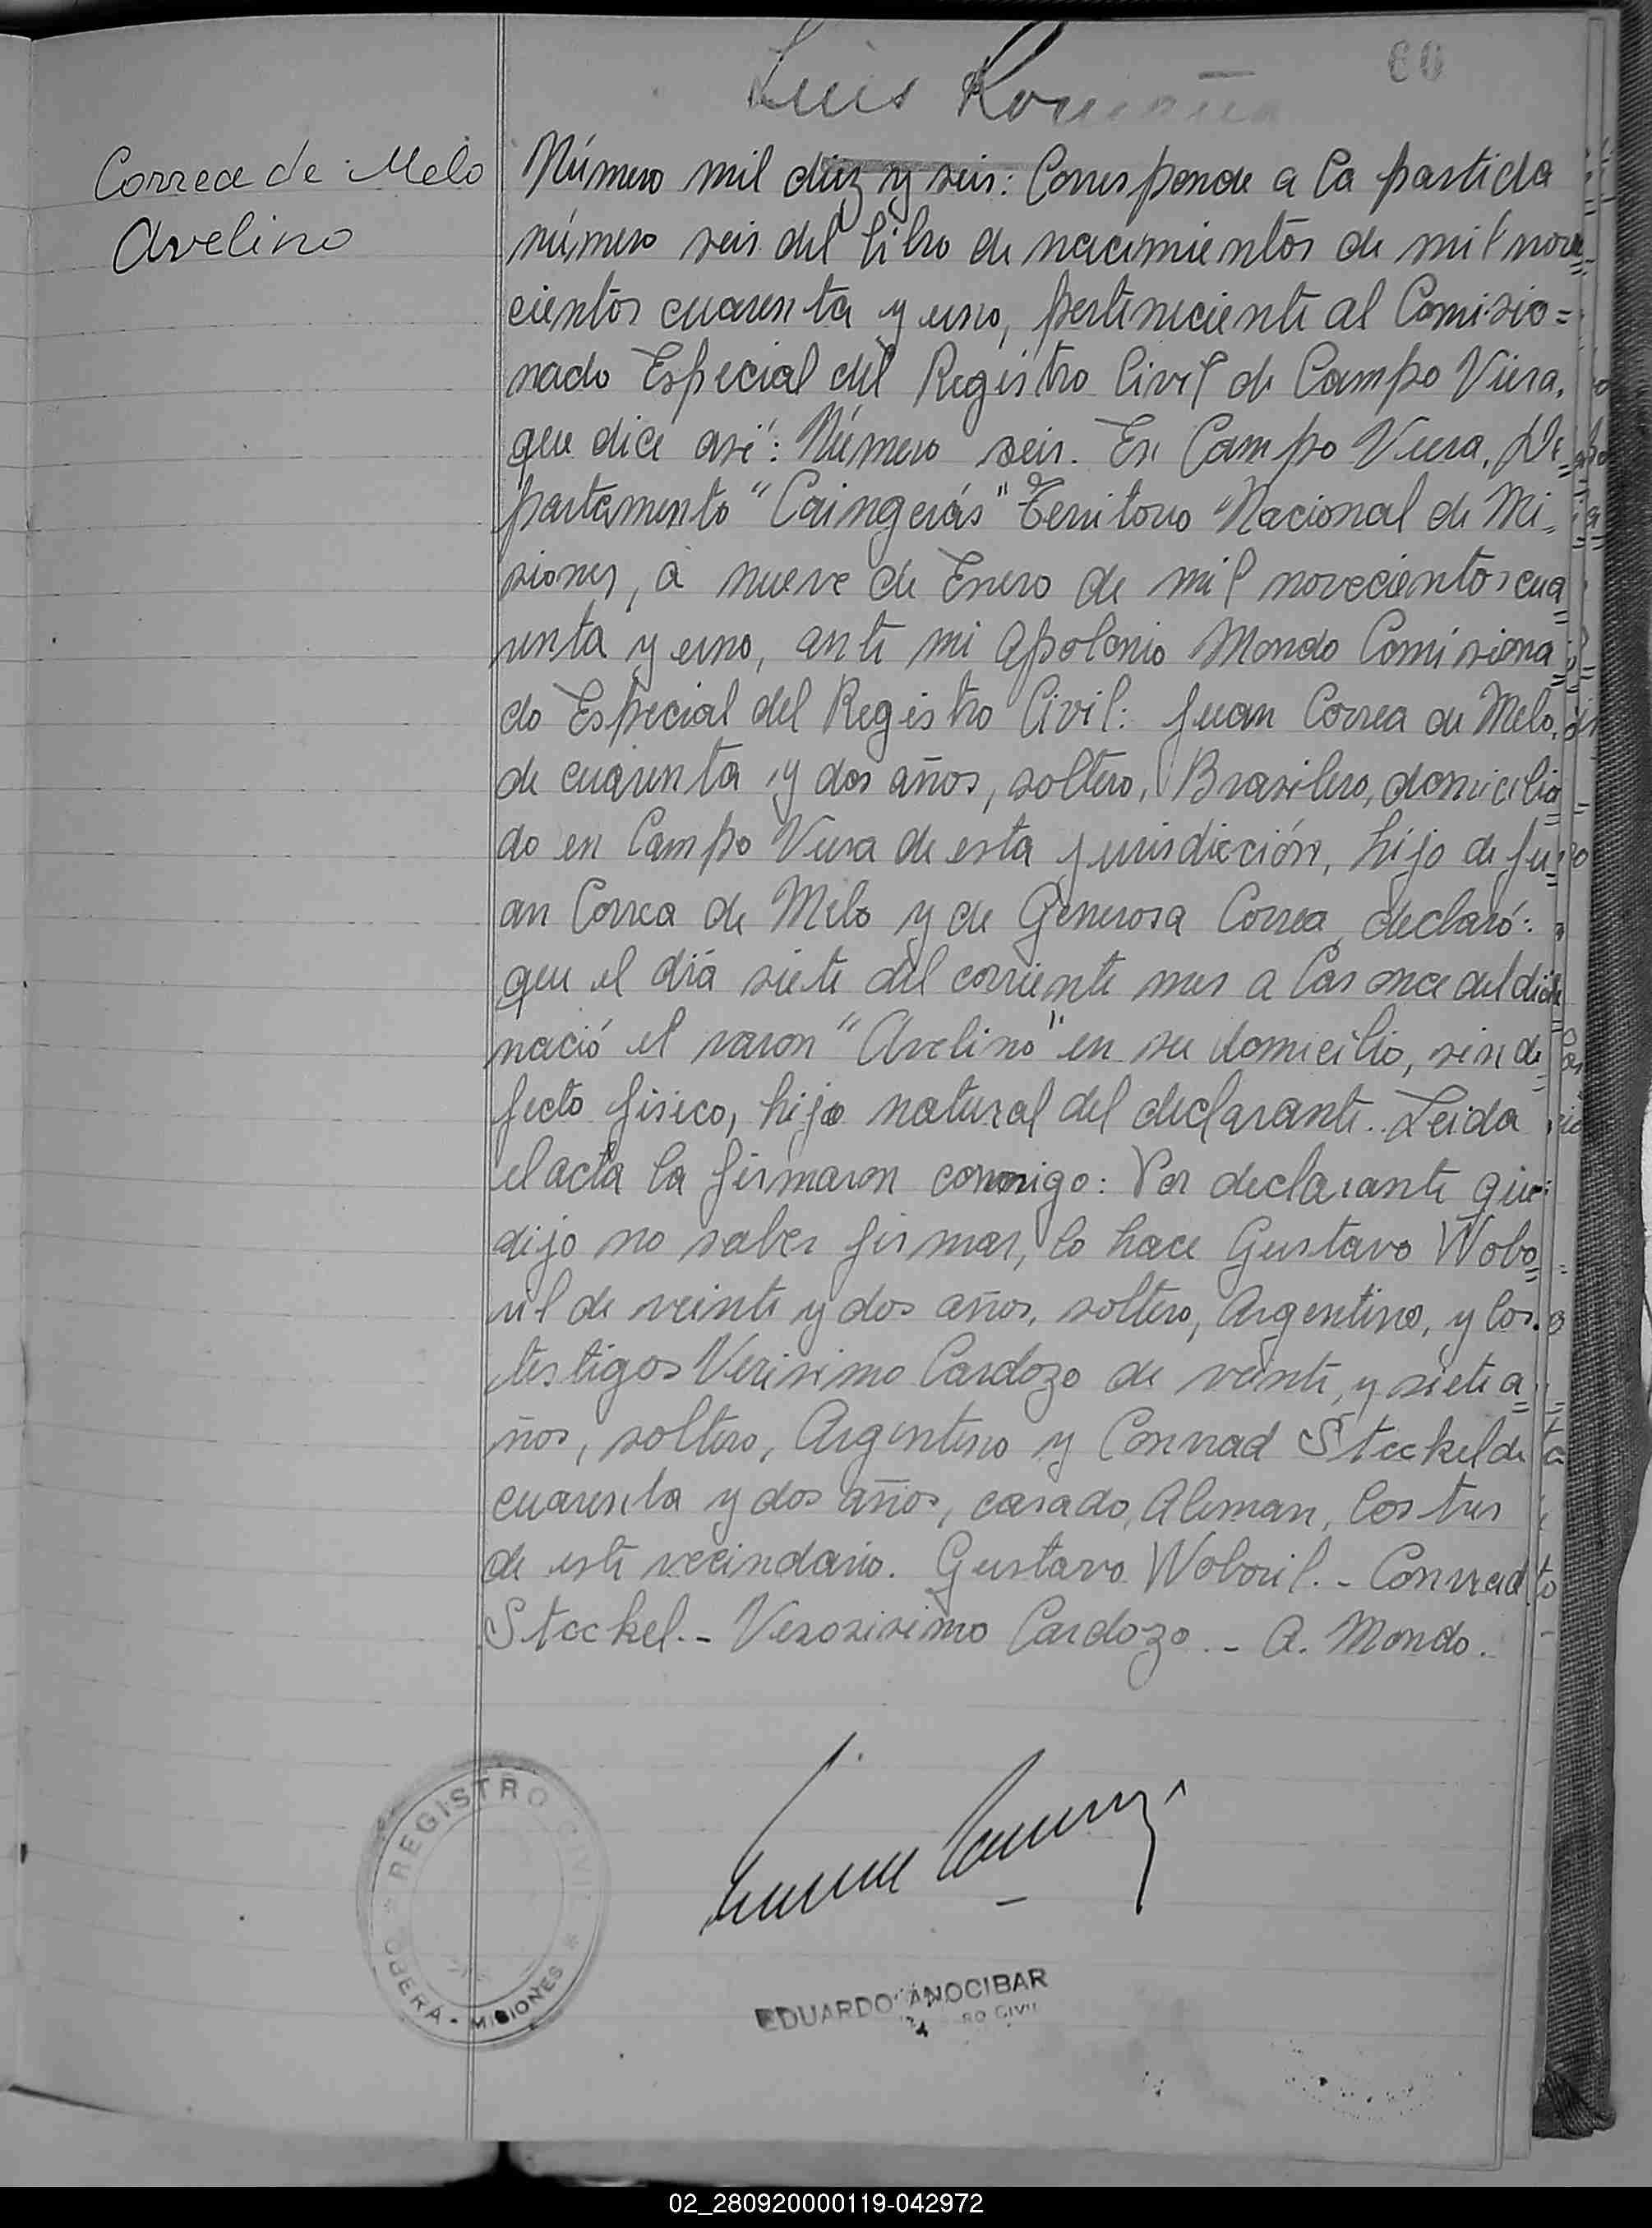 60
Luis
Correa de Melo
Avelino
Número mil diez y seis: Corresponde a la partida
número seis del libro de nacimientos de mil nove=
cientos cuarenta y uno, perteneciente al Comisio=
nado Especial del Registro Civil de Campo Viera,
que dice así: Número seis. En Campo Viera, De=
partamento "Cainguás" Territorio Nacional de Mi=
siones, a nueve de Enero de mil novecientos cua=
renta y uno, ante mi Apolonio Mondo Comisiona=
do Especial del Registro Civil: Juan Correa de Melo,
de cuarenta y dos años, soltero, Brasilero, domicilia=
do en Campo Viera de esta jurisdicción, hijo de Ju=
an Correa de Melo y de Generosa Correa, declaró:
que el día siete del corriente mes a las once del día
nació el varon "Avelino" en su domicilio, sin de=
fecto fisico, hijo natural del declarante. Leida
el acta la firmaron conmigo: Por declarante que
dijo no saber firmar, lo hace Gustavo Wobo=
ril de veinte y dos años, soltero, Argentino, y los
testigos Verisimo Cardozo de veinte y siete a=
ños, soltero, Argentino y Conrad Steckel de
cuarenta y dos años, casado, Aleman, los tres
de este vecindario. Gustavo Woboril.- Conrad
Steckel.- Verosisimo Cardozo.- A. Mondo.
REGISTRO CIVIL
OBERA - MISIONES
EDUARDO ANOCIBAR
CIVIL
02_280920000119-042972